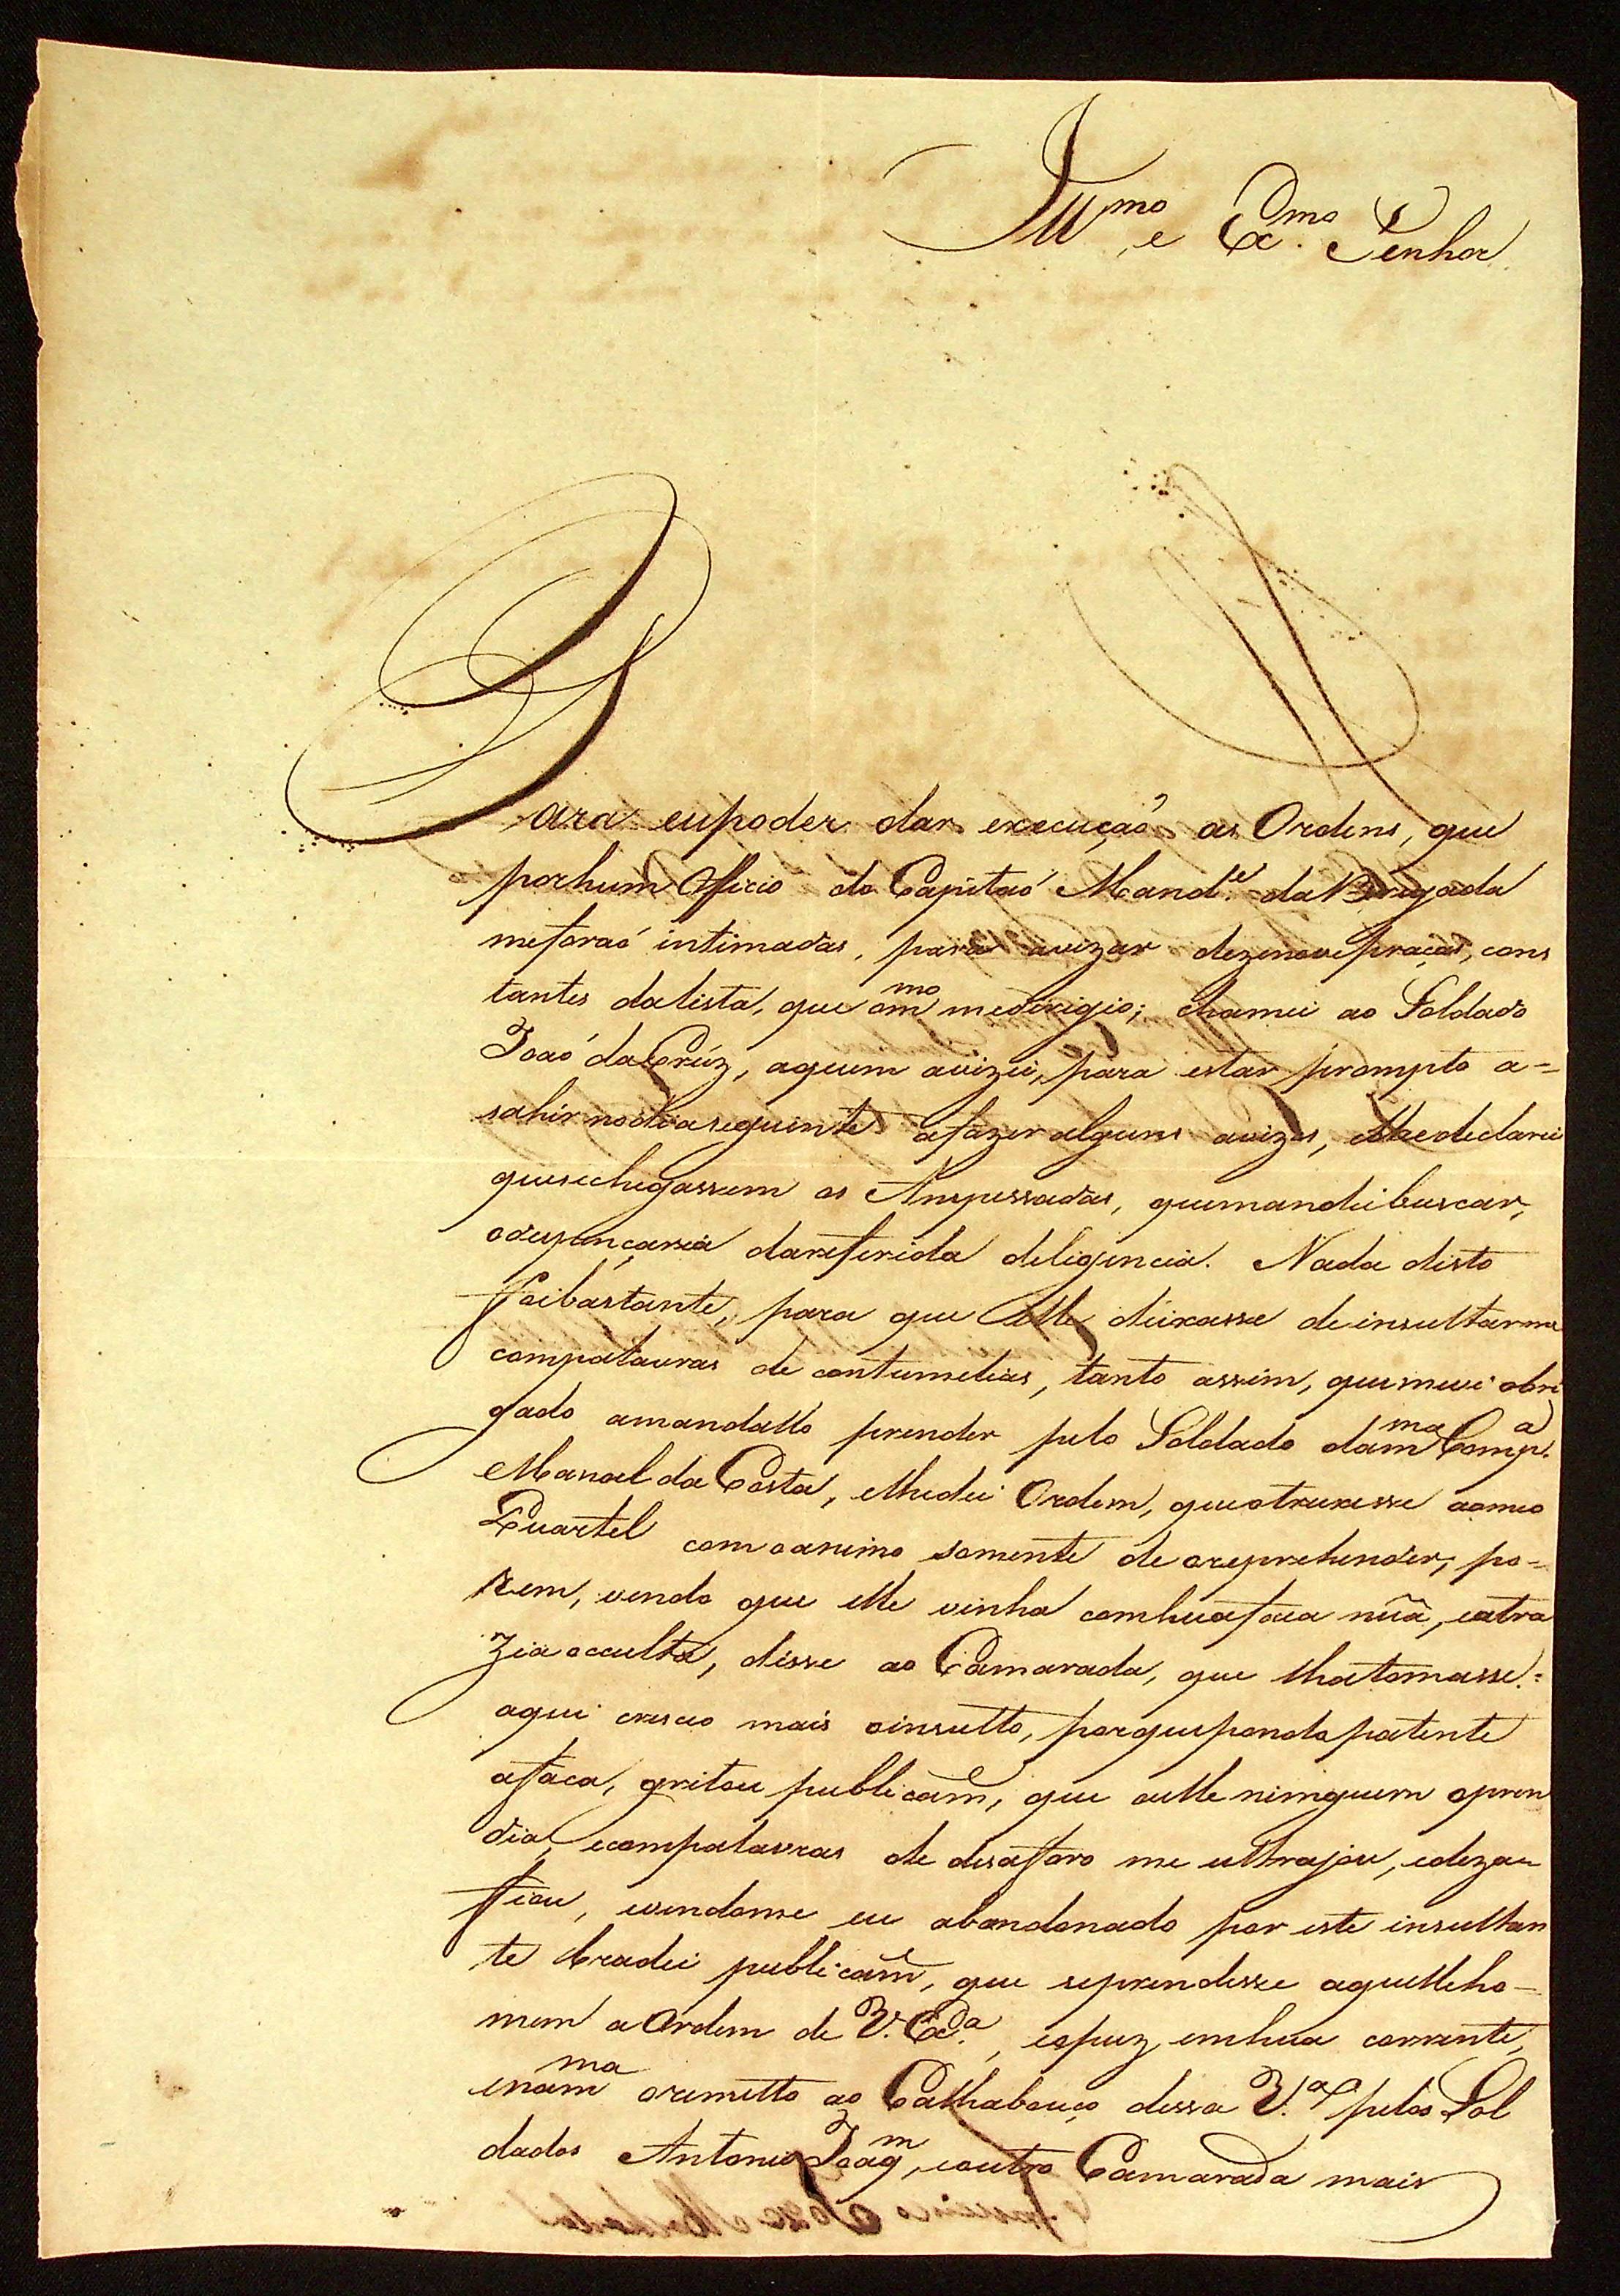 Ill.mo e Ex.mo Senhor
Para eu poder dar execução as Ordens, que
por hum Officio do Capitaó Mand.e da Brigada
me foraó intimadas, para avizar dezenove praças, cons
tantes da lista, que o m.mo me dirigio; chamei ao Soldado
Joaó da Crúz, aquem avizei, para estar prompto a=
sahir no dia seguinte afazer alguns avizos, elhe declarei
que se chegassem os Anspessadas, que mandei buscar,
o despençaria da referida deligencia. Nada disto
foi bastante, para que elle deixasse de insultarme
com palavras de contumelias, tanto assim, que me vi obri
gado amandallo prender pelo Soldado da m.ma Comp.a
Manoel da Costa, elhe dei Ordem, que o truxesse ao meo
Quartel com o animo somente de o reprehender; po=
rem, vendo que elle vinha com hua faca nûa, e a tra
zia occulta, disse ao Camarada, que lha tomasse:
aqui cresceo mais o insulto, porque pondo patente
a faca, gritou publicam.e, que a elle ninguem o pren
dia, e com palavras de desaforo me ultrajou, e deza=
fiou, e vendome eu abandonado por este insultan
te bradei publicam.e, que se prendesse aquelle ho=
mem a Ordem de V. Ex.a, e o puz em hua corrente,
e na m.ma o remetto ao Calhabouço dessa V.a pelos Sol
dados Antonio Joaq.m, e outro Camarada mais